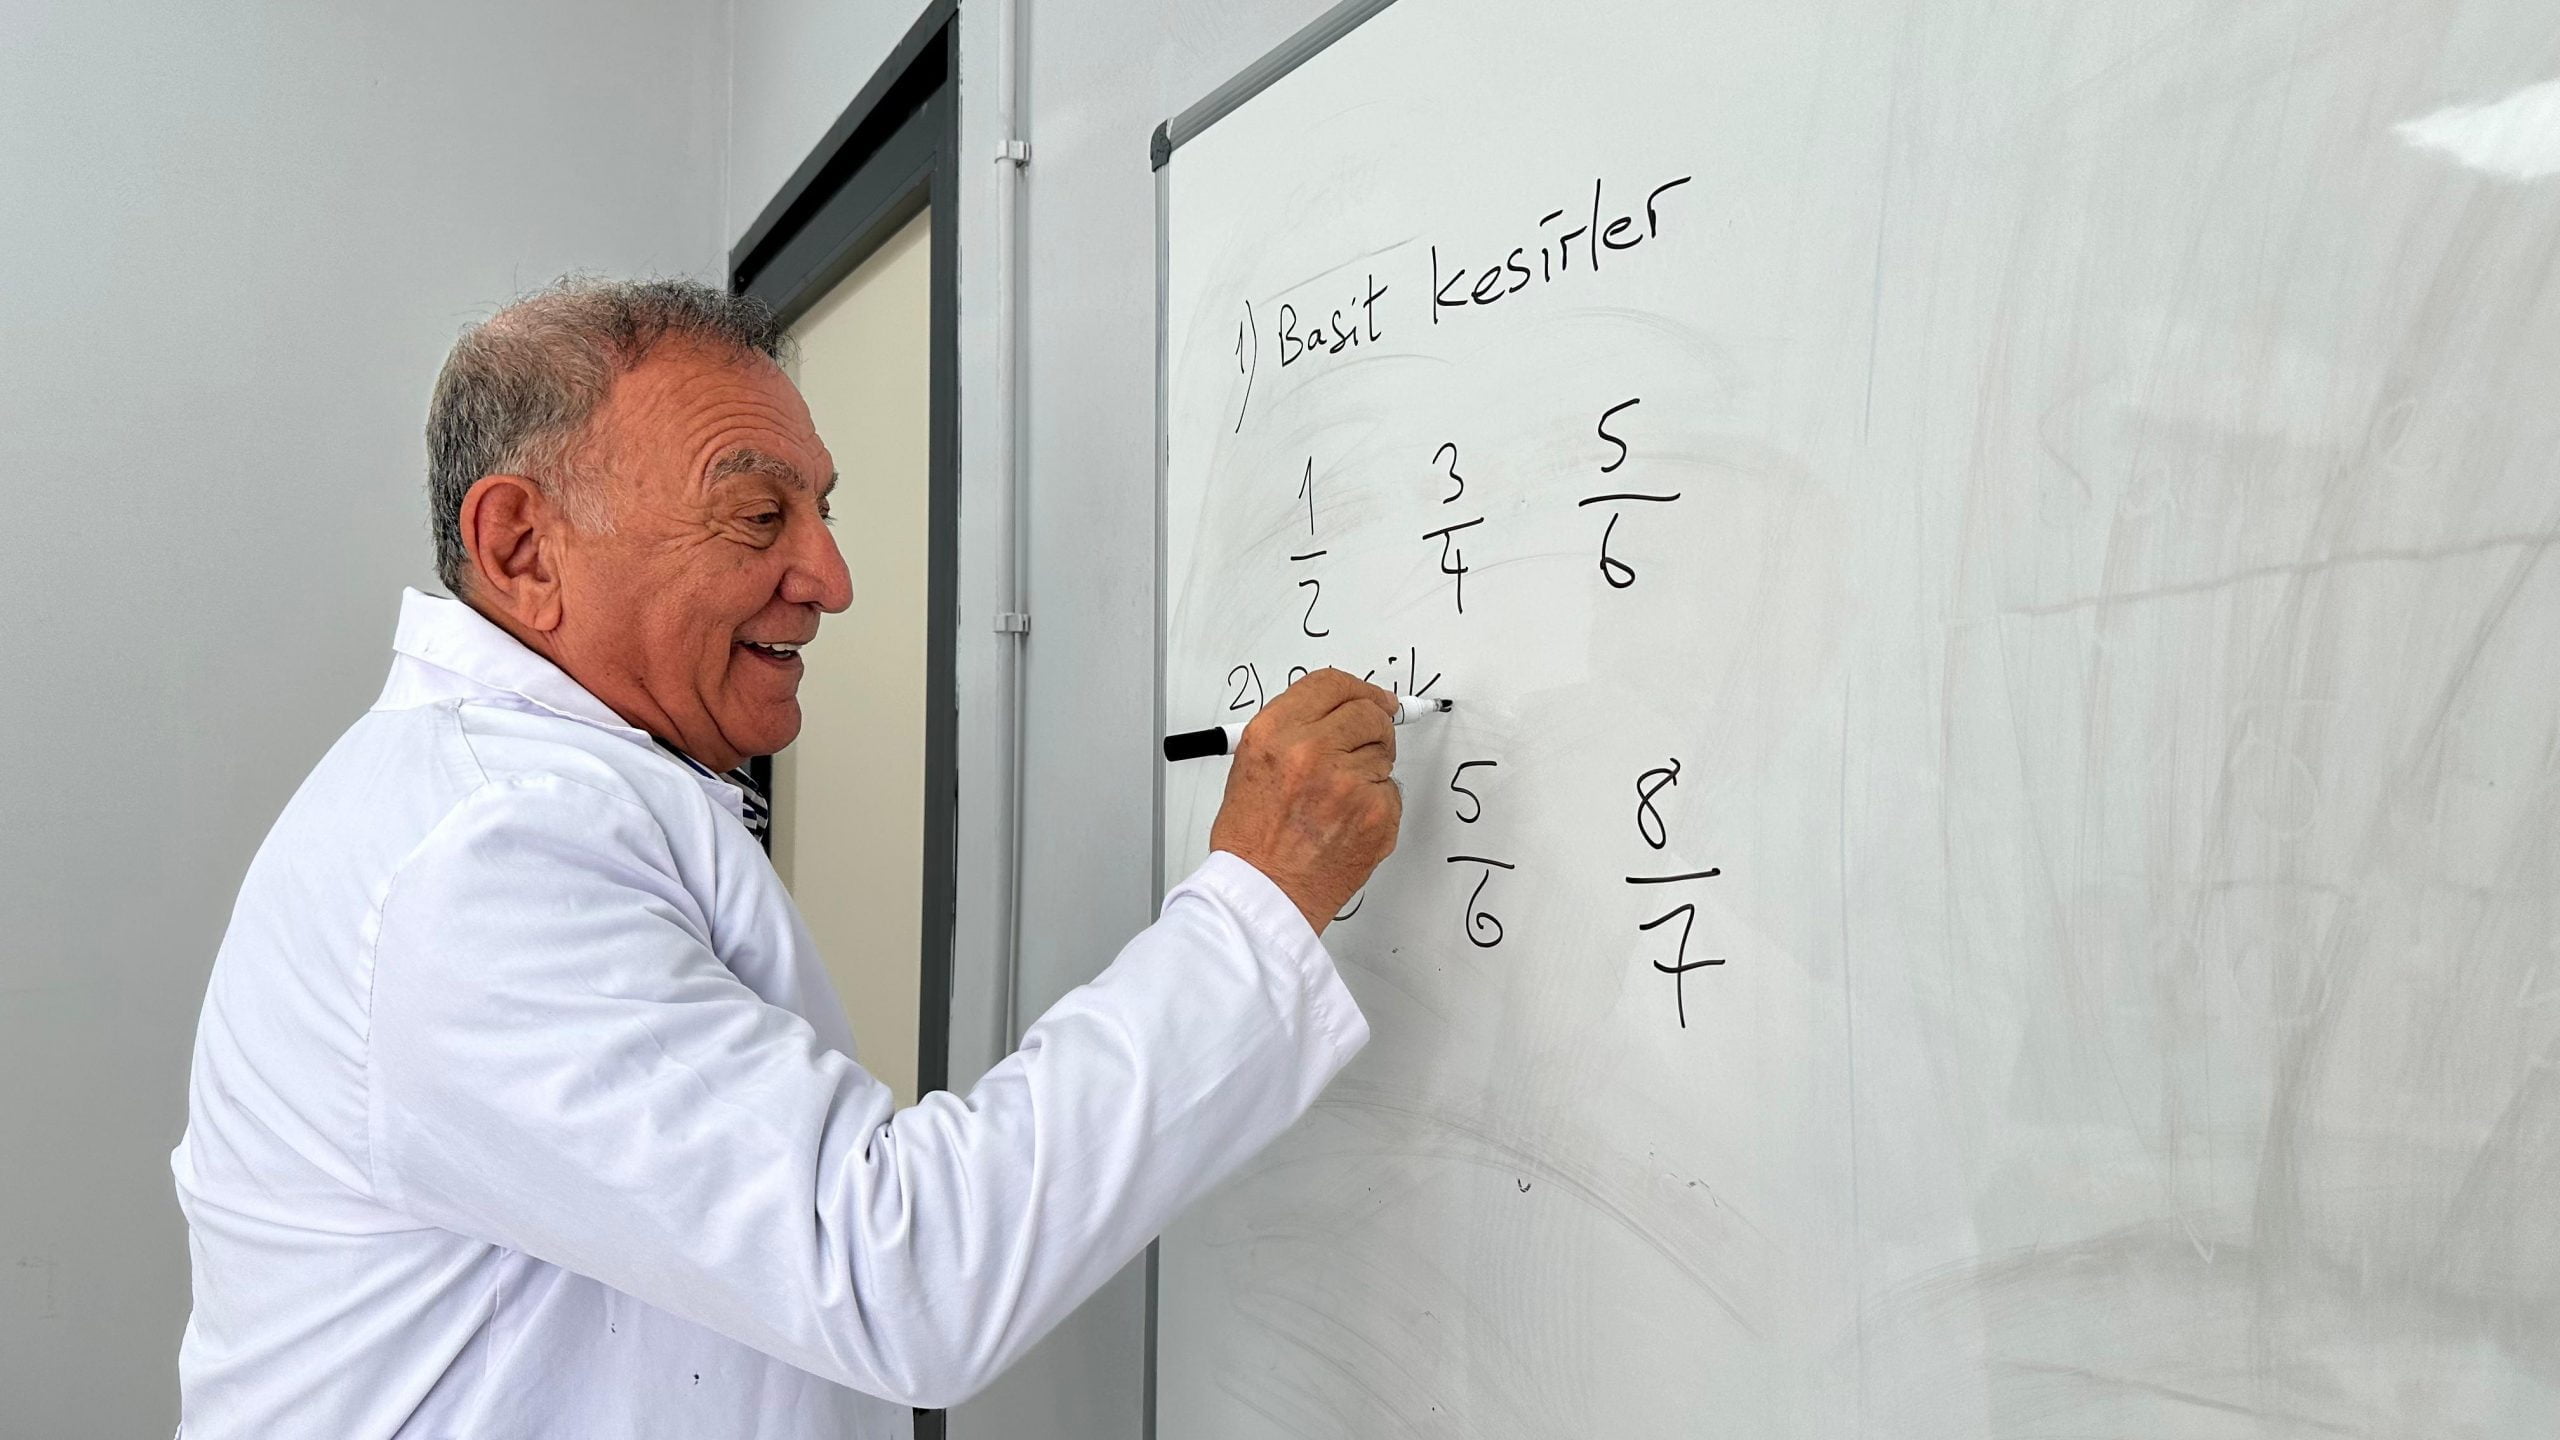 1) Basit kesirler
1/2 3/4 5/6
2)
5/6 8/7